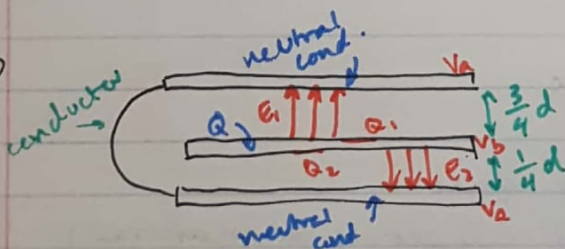 neutral
cond.
Va
conductor
E₁
3/4 d
Q
Q₁
Vb
Q₂
E₂
1/4 d
Va
neutral
cond